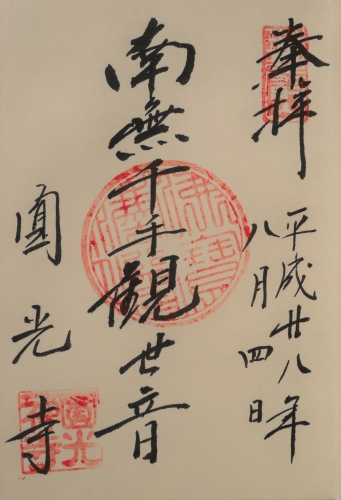 奉拝
平成廿八年
八月四日
南無千手觀世音
圓光寺